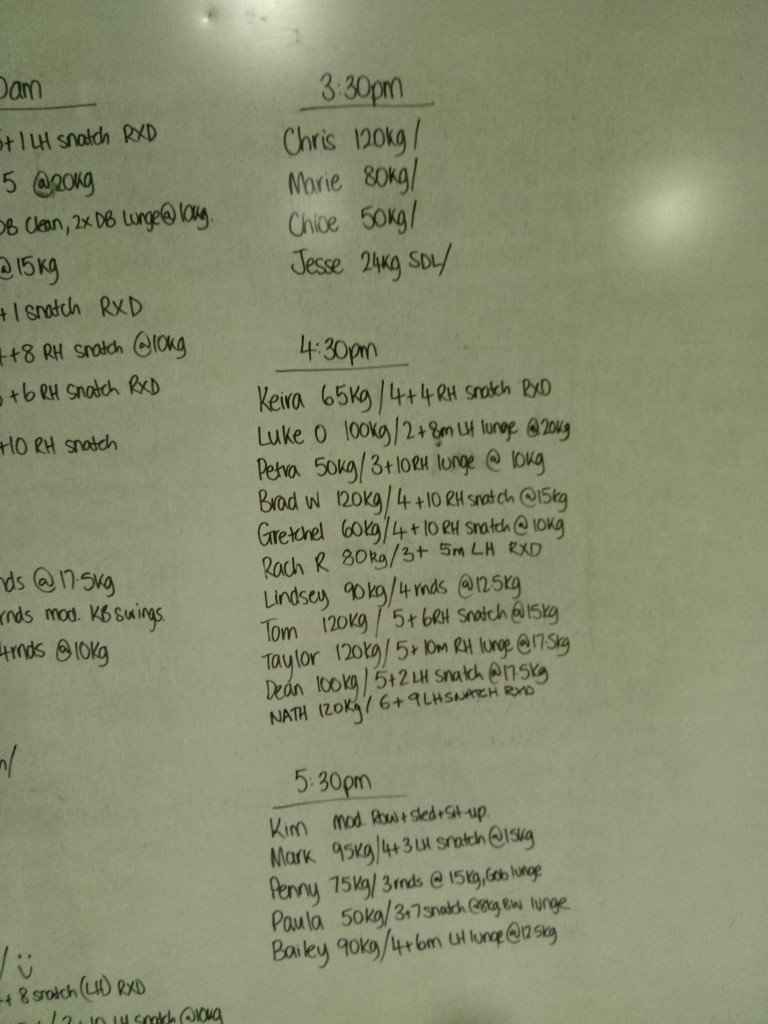 0am
+ 1 LH snatch RXD
5 @20kg
DB Clean, 2x DB lunge@10kg.
@15kg
+ 1 snatch RXD
+8 RH snatch @10kg
+6 RH snatch RXD
+10 RH snatch
nds @17.5kg
rnds mod. KB swings.
4rnds @10kg
/
/
+ 8 snatch (LH) RXD
LH snatch @10kg
3:30pm
Chris 120kg/
Marie 80kg/
Chloe 50kg/
Jesse 24kg SDL/
4:30pm
Keira 65kg/4+4RH snatch RXD
Luke O 100kg/2+8m LH lunge @20kg
Petra 50kg/3+10RH lunge @ 10kg
Brad W 120kg/4+10 RH snatch @15kg
Gretchel 60kg/4+10 RH snatch@10kg
Rach R 80kg/3+ 5m LH RXD
Lindsey 90kg/4rnds @12.5kg
Tom 120kg/ 5+6RH Snatch@15kg
Taylor 120kg/5+10m RH lunge@17.5kg
Dean 100kg/5+2LH snatch@17.5kg
NATH 120kg/6+9LH SNATCH RXD
5:30pm
Kim mod. Row+sled+sit-up.
Mark 95kg/4+3LH snatch@15kg
Penny 75kg/3rnds @ 15kg, Gob lunge
Paula 50kg/3+7snatch@8kg BW lunge
Bailey 90kg/4+6m LH lunge@12.5kg